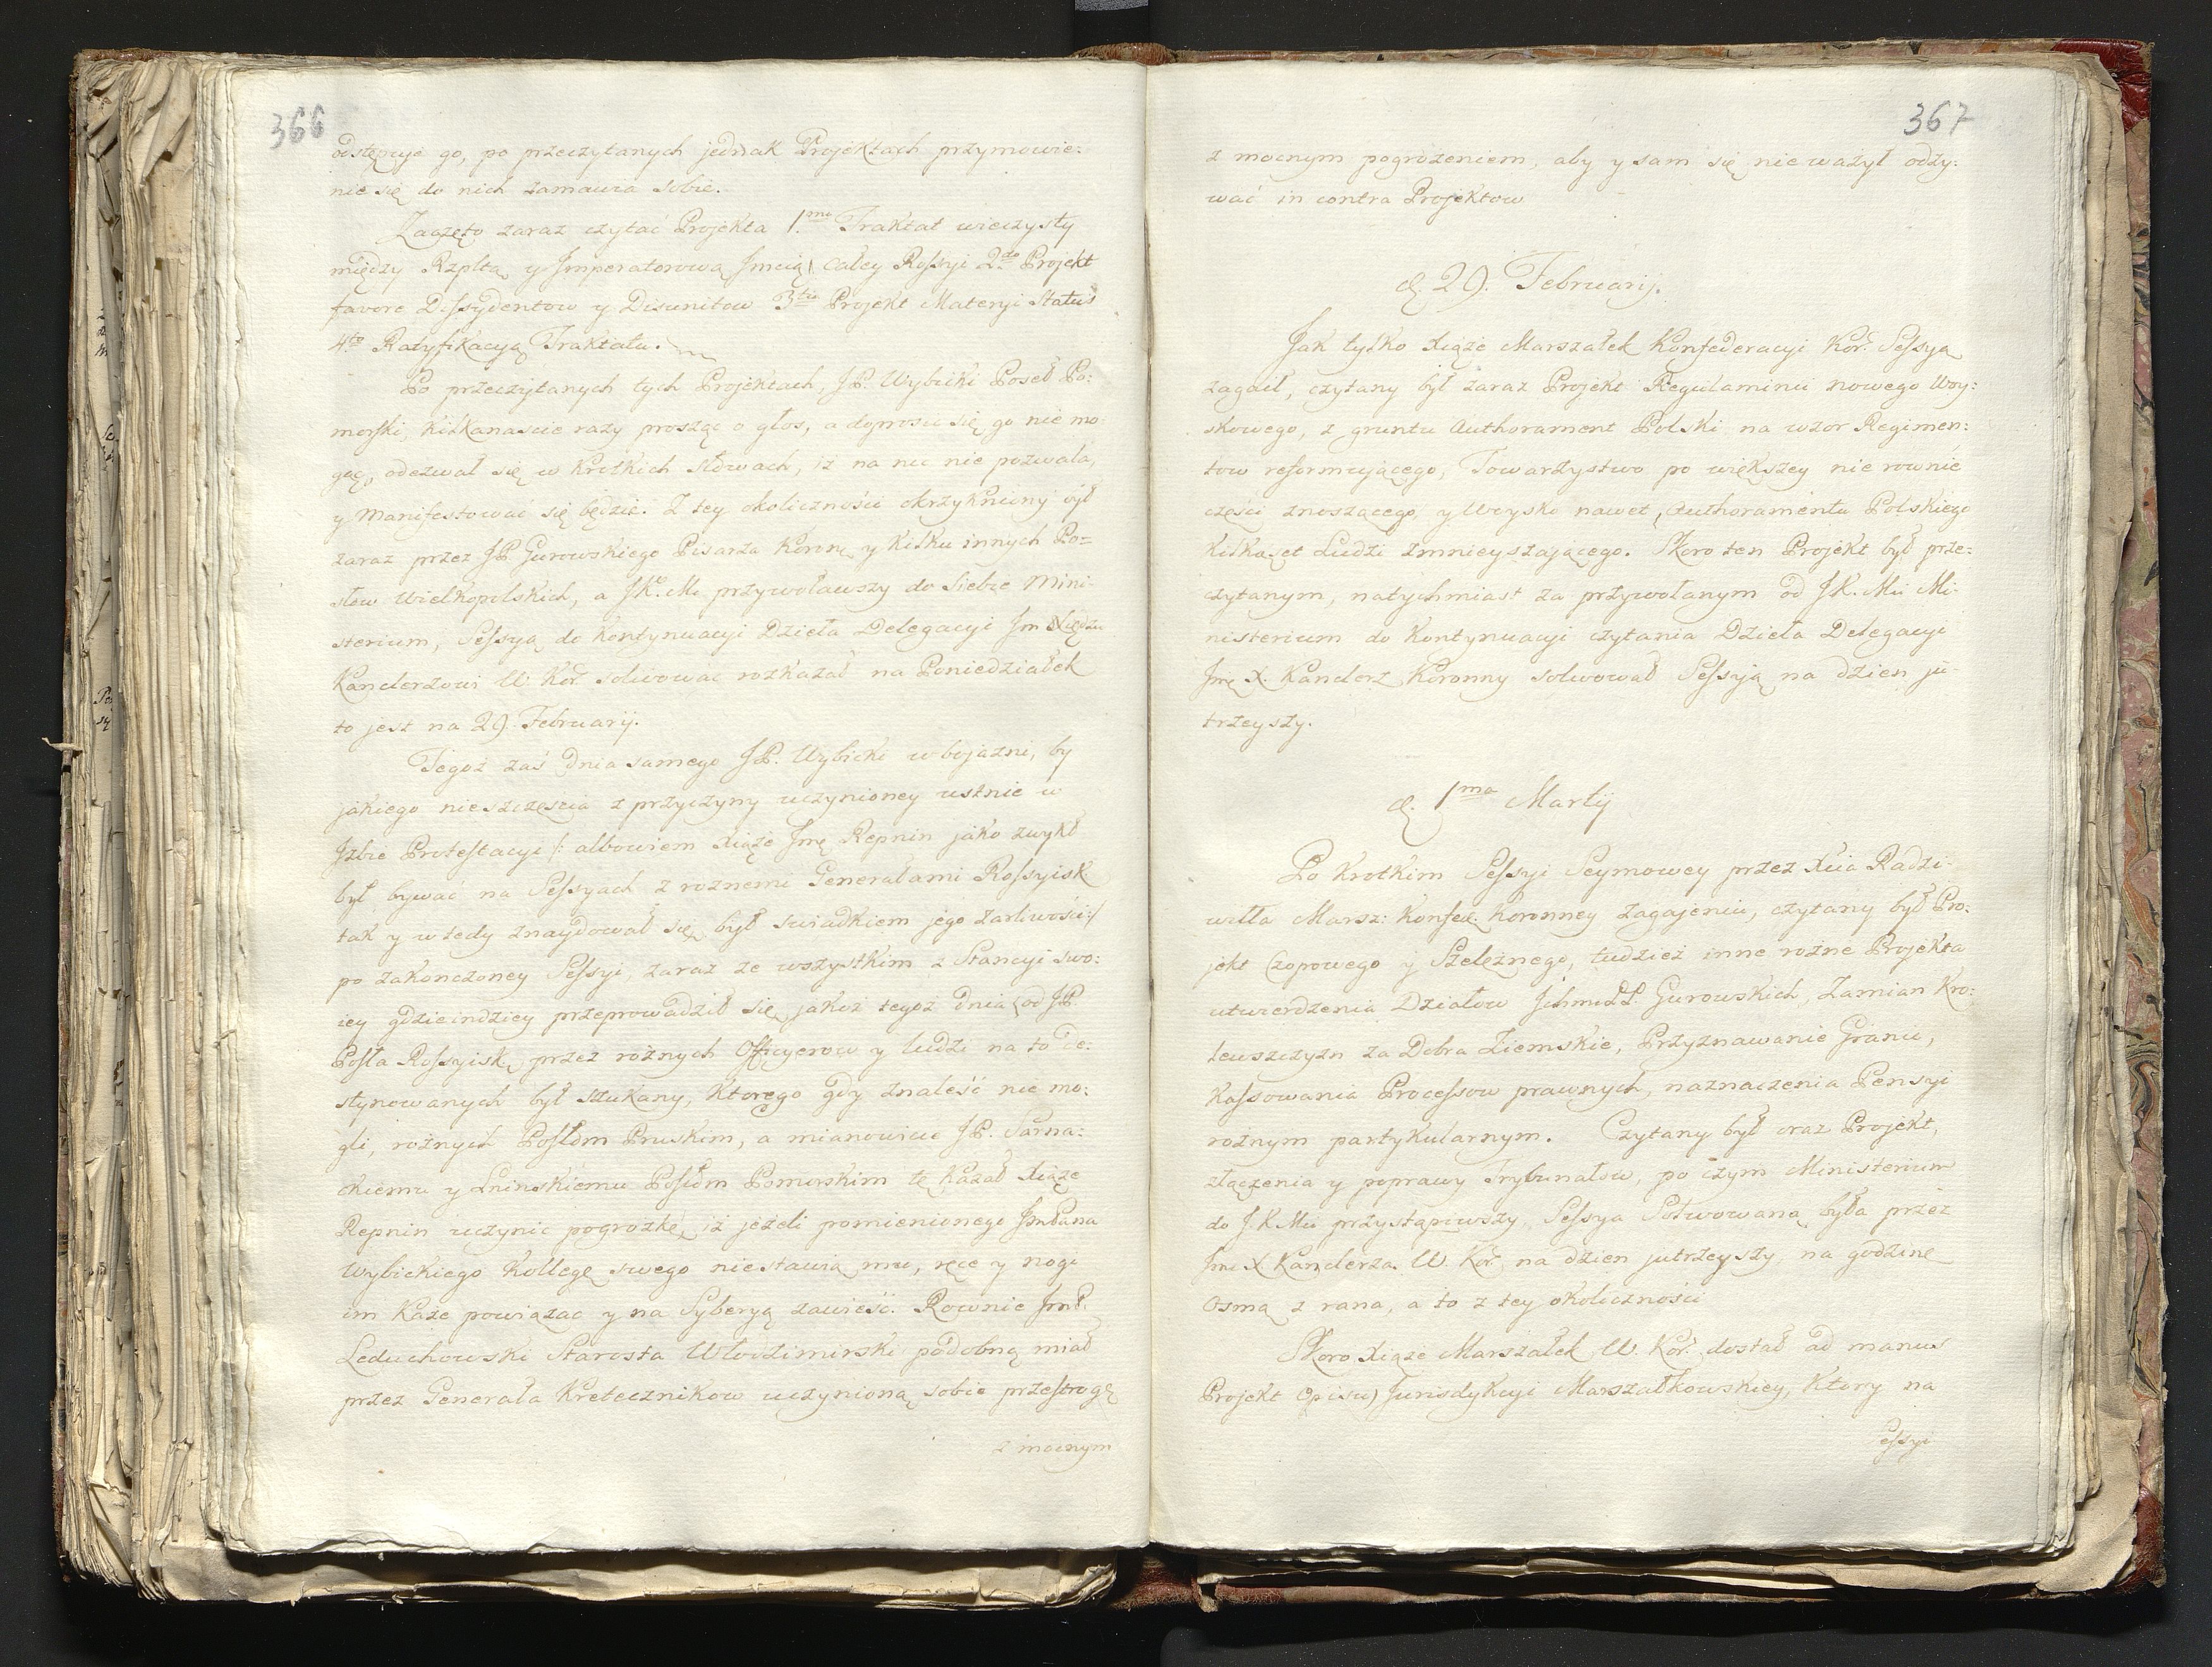 366
odstępuje go, po przeczytanych jednak Projektach przymowie:
nie się do nich zamawia sobie.
Zaczęto zaraz czytać Projekta 1.mo Traktat wieczysty
między Rzpltą y Imperatorową Imcią całey Rossyi 2.do Projekt
favore Dissydentow y Disunitow 3tio Projekt Materyi Status
4.to Ratyfikacyą Traktatu.
Po przeczytanych tych Projektach, JP. Wybicki Poseł Po:
morski, kilkanascie razy prosząc o głos, a doprosić się go nie mo
gąc, odezwał się w krotkich słowach, iż na nic nie pozwala,
y Manifestować się będzie. Z tey okoliczności okrzykniony był
zaraz przez JP. Gurowskiego Pisarza Koronę y kilku innych Po=
słow Wielkopolskich, a JK. Mć przywoławszy do siebie Mini-
sterium, Sessyą do kontynuacyi Dzieła Delegacyi Jm Xiędzu
Kanclerzowi W. Kor. solwować rozkazał na Poniedziałek
to jest na 29. Februarij.
Tegoż zaś dnia samego JP. Wybicki w bojazni, by
jakiego nieszczęscia z przyczyny uczynioney ustnie w
Izbie Protestacyi /: albowiem Xiąże Jmę Repnin jako zwykł
był bywać na Sessyach z roznemi Generałami Rossyisk
tak y w tedy znaydował się, był swiadkiem jego żarliwości:/
po zakonczoney Sessyi, zaraz ze wszystkim z Stancyi swo:
iey gdzieindziey przeprowadził się, jakoż tegoż dnia od JP.
Posła Rossyisk, przez rożnych Officyerow y ludzi na to de:
stynowanych był szukany, ktorego gdy znaleść nie mo:
gli, rożnych Posłom Pruskim, a mianowicie JP. Sarna:
ckiemu y Lninskiemu Posłom Pomorskim tę kazał Xiąże
Repnin uczynić pogrozkę, iż jeżeli pomienionego JmPana
Wybickiego Kollegę swego nie stawią mu, ręce y nogi
im każe powiązać y na Syberyą zawieść. Rownie JmP.
Leduchowski Starosta Włodzimirski podobną miał
przez Generała Kreteczników uczynioną sobie przestrogę
z mocnym
367
z mocnym pogrożeniem, aby y sam się nie ważył odzy:
wać in contra Projektow
d. 29. Februarij.
Jak tylko Xiąże Marszałek Konfederacyi Kor. Sessyą
zagaił, czytany był zaraz Projekt Regulaminu nowego Woy:
skowego, z gruntu Authorament Polski na wzor Regimen:
tow reformującego, Towarzystwo po większey nie rownie
części znoszącego, y Woysko nawet Authoramentu Polskiego
kilkaset Ludzi zmnieyszającego. Skoro ten Projekt był prze:
czytanym, natychmiast za przywołanym od JK. Mci Mi-
nisterium do kontynuacyi czytania Dzieła Delegacyi
Jmę X. Kanclerz Koronny solwował Sessyją na dzien ju-
trzeyszy.
d. 1ma Martij
Po krotkim Sessyi Seymowey przez Xcia Radzi-
wiłła Marsz: Konfed. Koronney zagajeniu, czytany był Pro:
jekt Czopowego y Szelężnego, tudzież inne rożne Projekta
utwierdzenia Działow Ichmć PP. Gurowskich, Zamian Kro:
lewszczyzn za Dobra Ziemskie, Przyznawanie Granic,
Kassowania Processow prawnych, naznaczenia Pensyi
rożnym partykularnym. Czytany był oraz Projekt,
złączenia y poprawy Trybunałow, po czym Ministerium
do J. K Mci przystąpiwszy, Sessya Solwowaną była przez
Jmć X Kanclerza W. Kor. na dzien jutrzeyszy na godzinę
Osmą z rana, a to z tey okoliczności
Skoro Xiąże Marszałek W. Kor. dostał ad manus
Projekt Opisu Jurisdykcyi Marszałkowskiey, ktory na
Sessyi